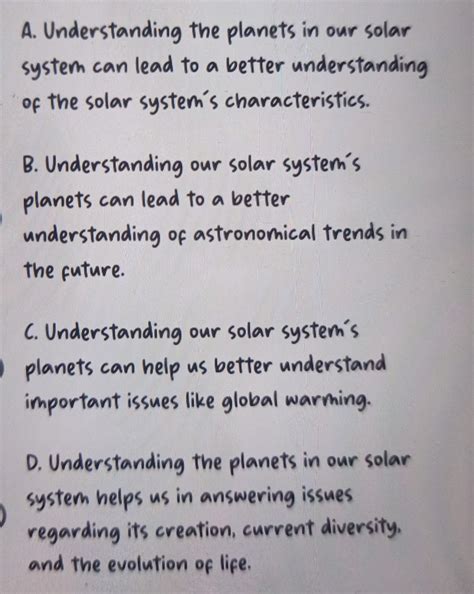 A. Understanding the planets in our solar
system can lead to a better understanding
of the solar system´s characteristics.
B. Understanding our solar system´s
planets can lead to a better
understanding of astronomical trends in
the future.
C. Understanding our solar system´s
planets can help us better understand
important issues like global warming.
D. Understanding the planets in our solar
system helps us in answering issues
regarding its creation, current diversity,
and the evolution of life.